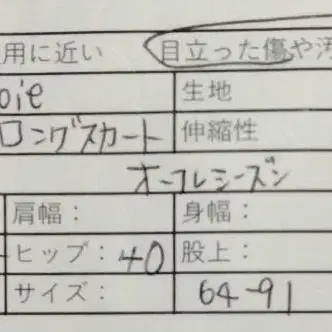 用に近い 目立った傷や汚
oie 生地
ロングスカート 伸縮性
オールシーズン
肩幅： 身幅：
ヒップ：40 股上：
サイズ： 64-91